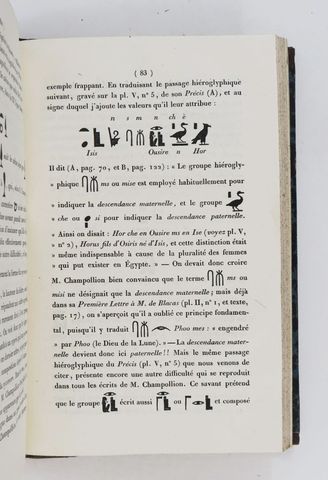 ( 83 )
exemple frappant. En traduisant le passage hiéroglyphique
suivant, gravé sur la pl. V, n° 5, de son Précis (A), et au
signe duquel j'ajoute les valeurs qu'il leur attribue :
n s m n chè
Isis Ousire n Hor
Il dit (A, pag. 70, et B, pag. 122) : « Le groupe hiérogly-
» phique ms ou mise est employé habituellement pour
» indiquer la descendance maternelle, et le groupe
» che ou si pour indiquer la descendance paternelle.
» Ainsi on disait : Hor che en Ousire ms en Ise (voyez pl. V,
» n° 2), Horus fils d'Osiris né d'Isis, et cette distinction était
» même indispensable à cause de la pluralité des femmes
» qui put exister en Égypte. » — On devait donc croire
M. Champollion bien convaincu que le terme ms ou
misi ne désignait que la descendance maternelle ; mais déjà
dans sa Première Lettre à M. de Blacas (pl. II, n° 1, et texte,
pag. 17), on s'aperçoit qu'il a oublié ce principe fondamen-
tal, puisqu'il y traduit Phoo mes : « engendré
» par Phoo (le Dieu de la Lune). » — La descendance mater-
nelle devient donc ici paternelle !! Mais le même passage
hiéroglyphique du Précis (pl. V, n° 5) que nous venons de
citer, présente encore une autre difficulté qui se reproduit
dans tous les écrits de M. Champollion. Ce savant prétend
que le groupe écrit aussi ou et composé